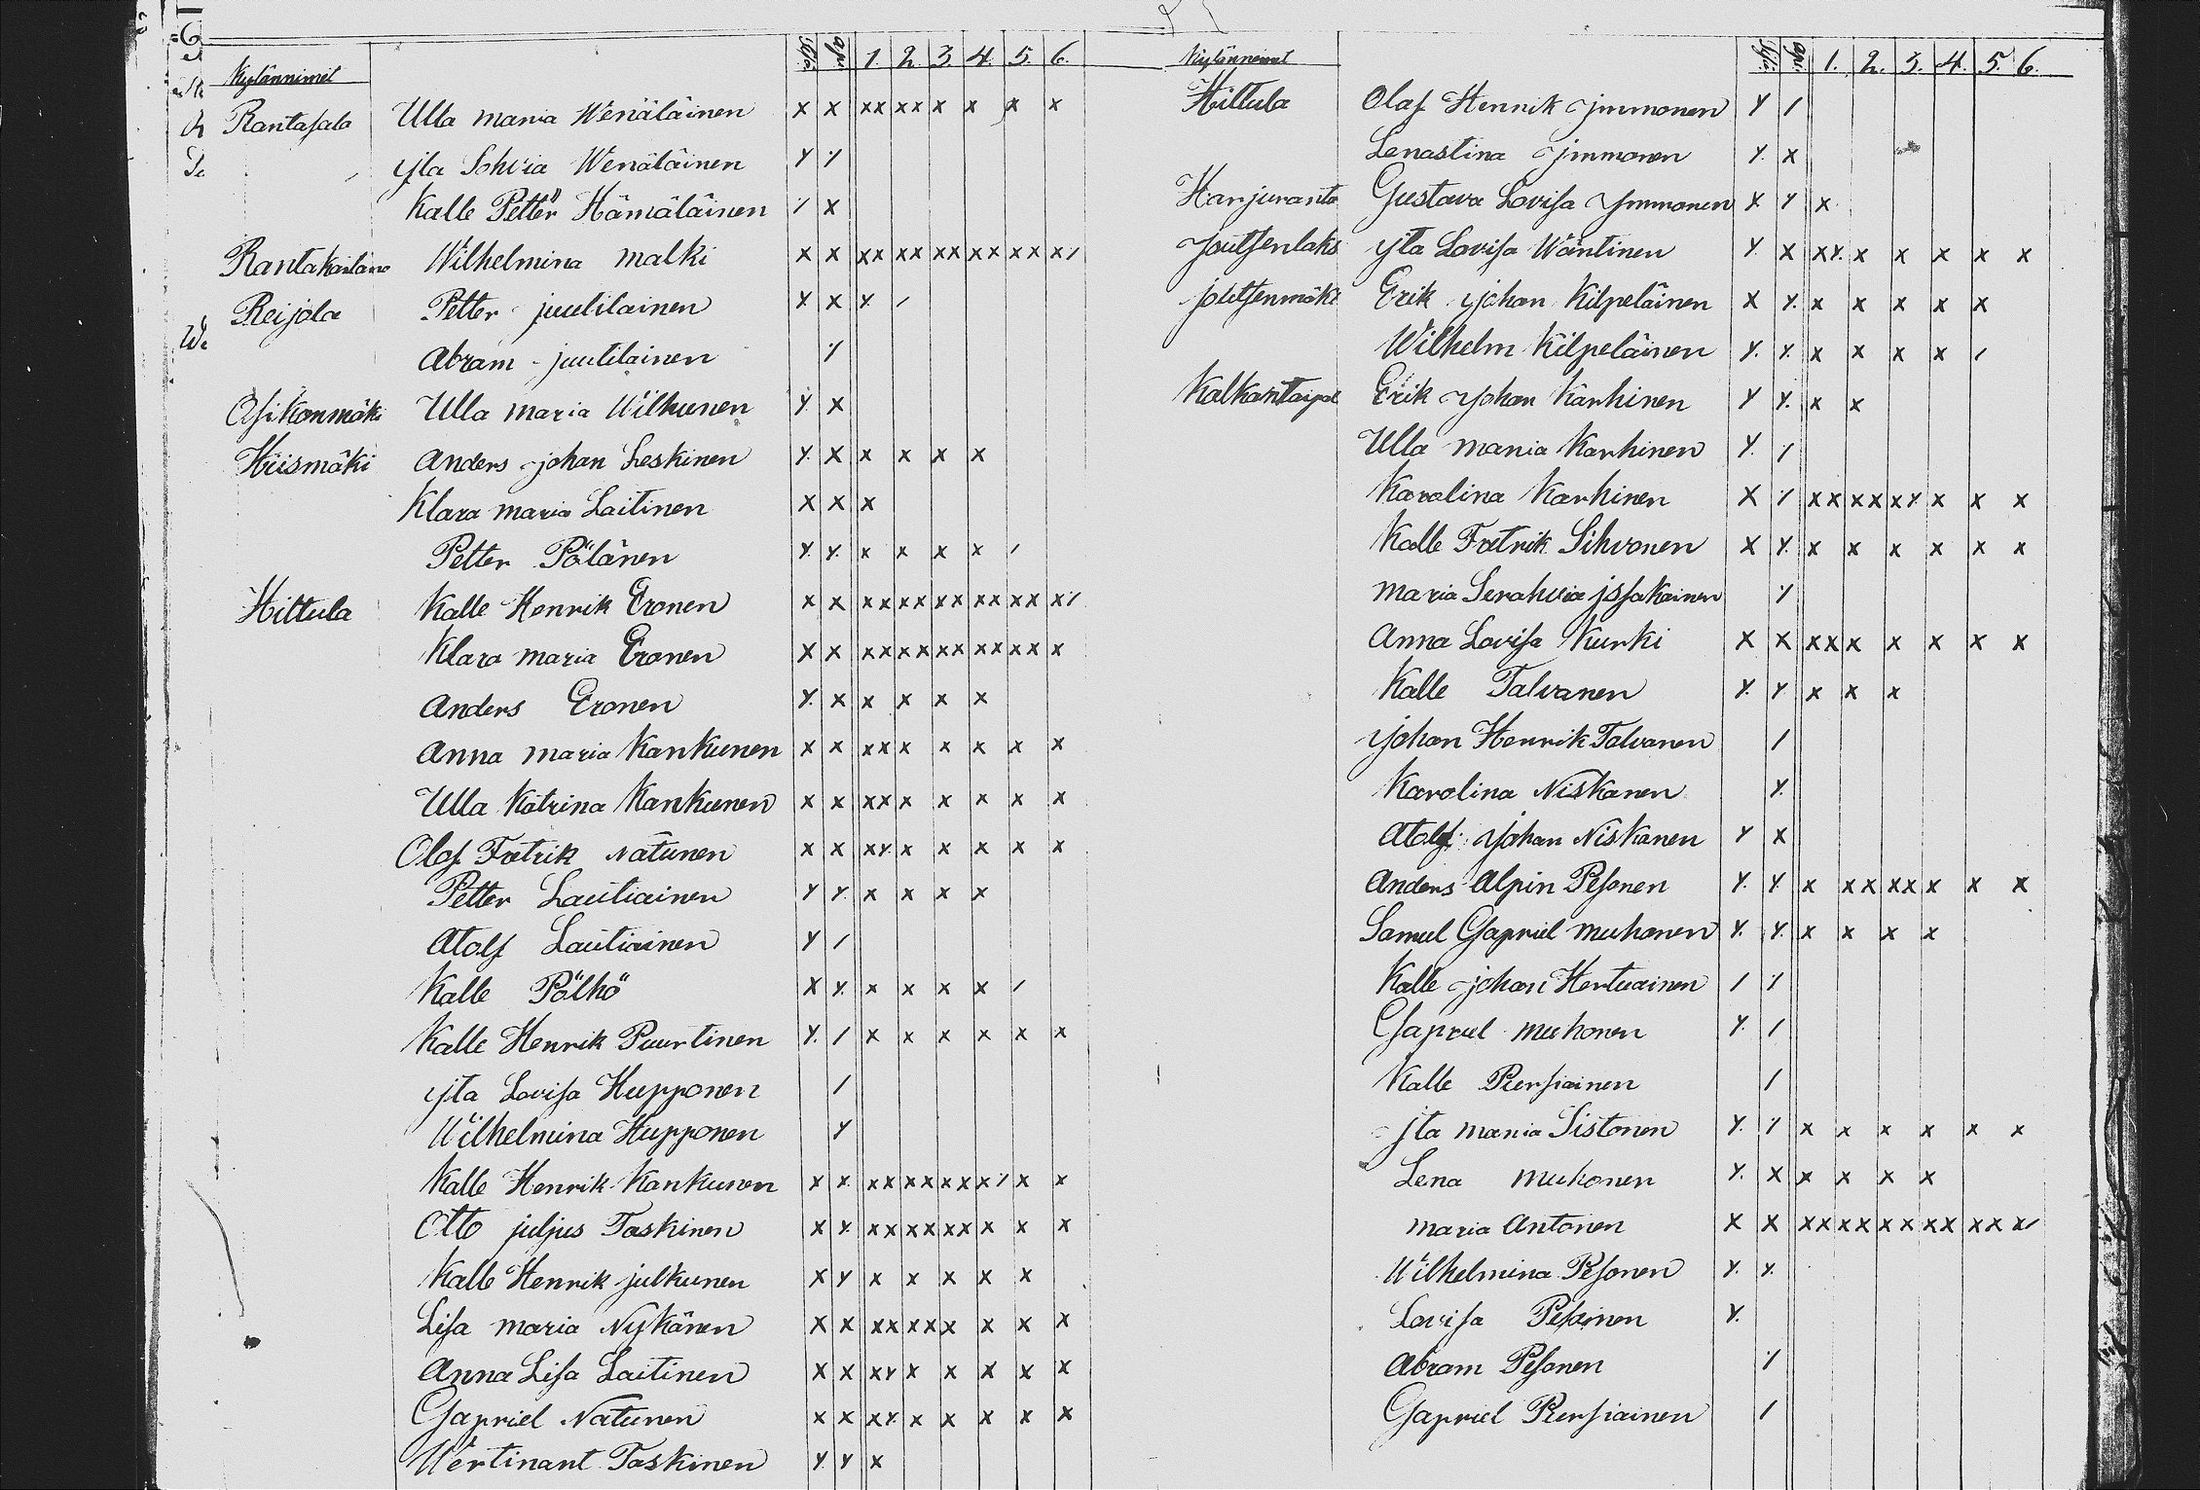 Kylännimet Sis. apu. 1. 2. 3. 4. 5. 6.
Rantasala Ulla maria Wenäläinen x x xx xx x x x x
yta Sohvia Wenäläinen y ⁒
Kalle Petter Hämäläinen ⁒ x
Rantakailano Wilhelmina Malki x x xx xx xx xx xx x⁒
Reijola Petter juutilainen y x y /
Abram juutilainen ⁒
Asikonmäki Ulla maria Wilkunen y x
Hiismäki Anders johan Leskinen y x x x x x
Klara maria Laitinen x x x
Petter Pölänen y y x x x x /
Hiltula Kalle Henrik Eronen x x xx xx xx xx xx x⁒
Klara maria Eronen x x xx xx xx xx xx x
Anders Eronen y x x x x x
Anna maria Kankunen x x xx x x x x x
Ulla Katrina Kankunen x x xx x x x x x
Olof Fretrik Natunen x x xy x x x x x
Petter Lautiainen y y x x x x
Atolf Lautiainen y /
Kalle Pölhö x y x x x x /
Kalle Henrik Puurtinen y / x x x x x x
yta Lovisa Hupponen /
Wilhelmina Hupponen y
Kalle Henrik Kankunen x x xx xx xx x⁒ x x
Otto juljus Taskinen x y xx xx xx x x x
Kalle Henrik julkunen x y x x x x x
Lisa maria Nykänen x x xx xx x x x x
Anna Lisa Laitinen x x xy x x x x x
Gapriel Natunen x x xy x x x x x
Wertinant Taskinen y y x
Kylännimet Sis. apu. 1. 2. 3. 4. 5. 6.
Hiltula Olof Henrik Immonen y /
Lenastina Immonen y x
Harjuranta Gustava Lovisa Immonen y y x
Joutsenlaks yta Lovisa Wäntinen y x xy x x x x x
joutsenmäki Erik johan Kilpeläinen x y x x x x x
Wilhelm Kilpeläinen y y x x x x /
Kalkantaipal Erik johan Karhinen y y x x
Ulla maria Karhinen y ⁒
Karolina Karhinen x ⁒ xx xx xy x x x
Kalle Fretrik Sihvonen x y x x x x x x
maria Serahvia jssakainen ⁒
Anna Lovisa Kurki x x xx x x x x x
Kalle Talvanen y y x x x
Johan Henrik Talvanen /
Karolina Niskanen y
Atolf johan Niskanen y x
Anders Alpin Pesonen y y x xx xx x x x
Samuel Gapriel muhonen y y x x x x
Kalle johan Hertuainen / ⁒
Gapriel muhonen y /
Kalle Piersiainen /
jta maria Sistonen y ⁒ x x x x x x
Lena muhonen y x x x x x
maria Antonen x x xx xx xx xx xx x/
Wilhelmina Pesonen y y
Lovisa Pesonen y
Abram Pesonen ⁒
Gapriel Piersiainen /